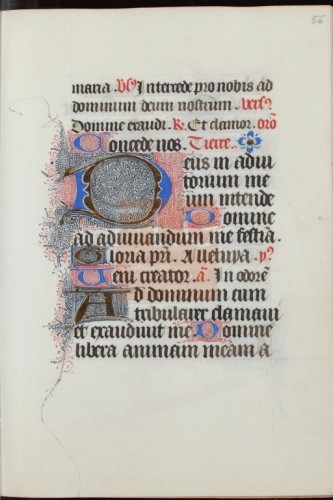 56
maria. V's. Intercede pro nobis ad
dominum deum nostrum. vers9
Domine exaudi. R. Et clamor. orõ
Concede nos. Tierce.
Deus in adiu
torium me
um intende
Domine
ad adiuuandum me festia.
Gloria pri. Alleluya. y9
Ueni creator. a. In odorẽ
Ad dominum cum
tribularer clamaui
et exaudiuit me Domine
libera animam meam a